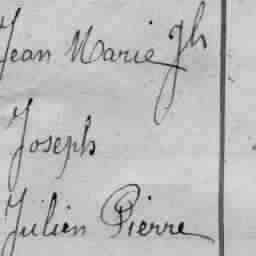 Jean Marie Jh
Joseph
Julien Pierre